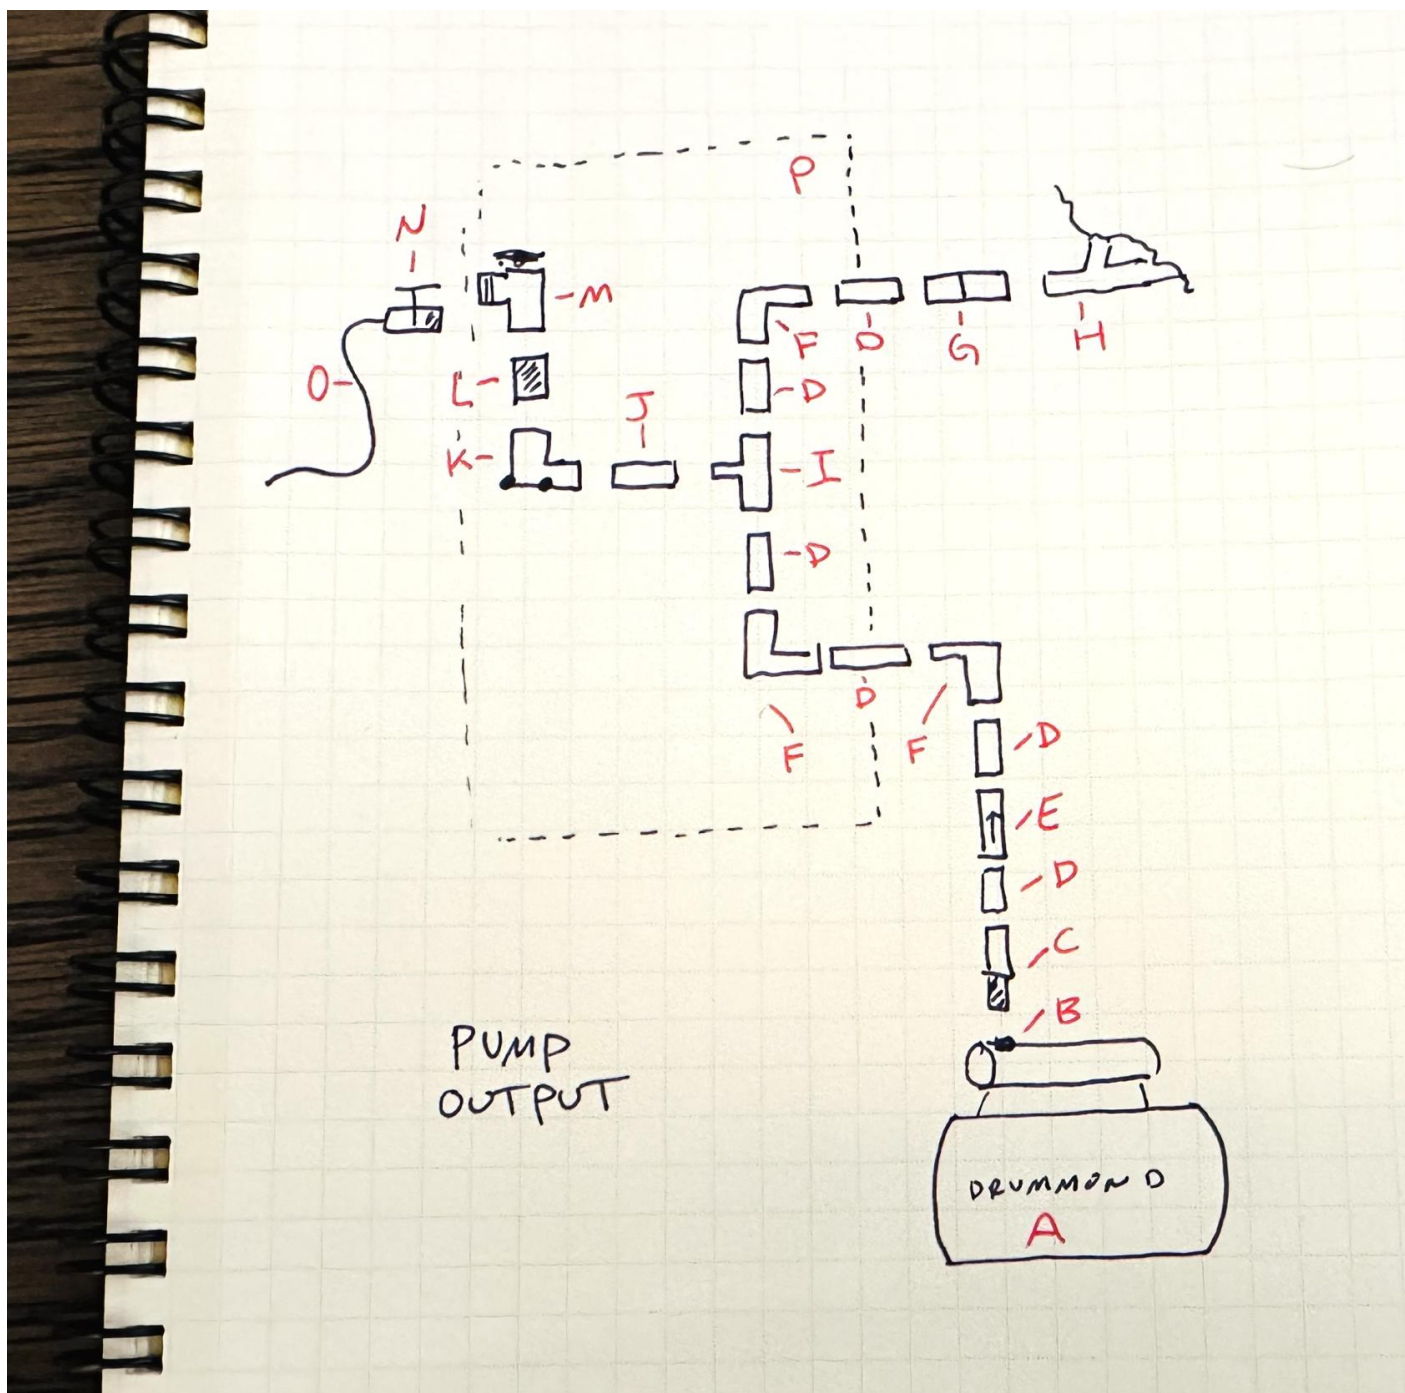 P
N
M
F
D
G
H
O
L
D
J
K
I
D
D
F
F
D
E
D
C
B
PUMP
OUTPUT
DRUMMOND
A